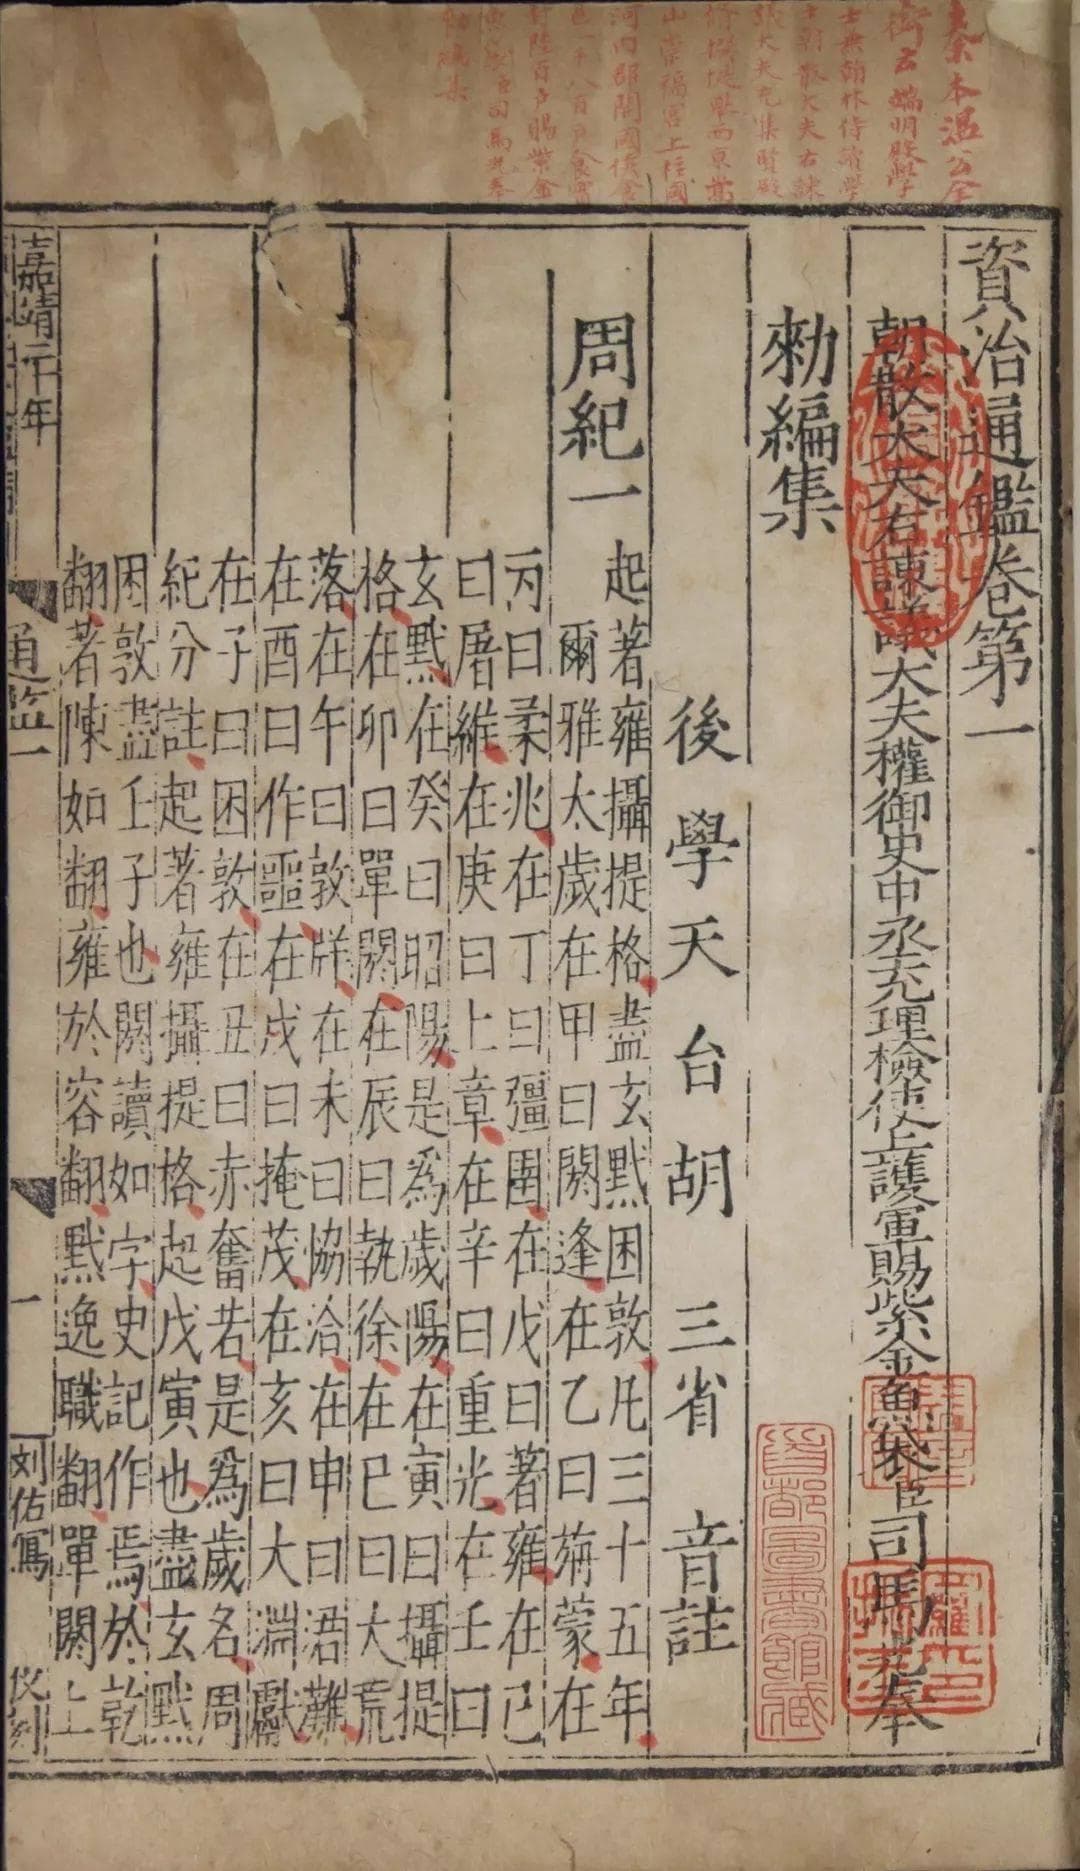 秦本溫公全
銜云端明殿學
士兼翰林侍讀學
士朝散大夫右諫
議大夫充集賢殿
修撰提舉西京嵩
山崇福宮上柱國
河內郡開國侯食
邑一千八百戶食實
封陸百戶賜紫金
魚袋臣司馬光奉
勅編集
資治通鑑卷第一
朝散大夫右諫議大夫權御史中丞充理檢使上護軍賜紫金魚袋臣司馬光奉
勑編集
後學天台胡三省音註
周紀一
起著雍攝提格盡玄黓困敦凡三十五年
爾雅太歲在甲曰閼逢在乙曰旃蒙在
丙曰柔兆在丁曰彊圉在戊曰著雍在己
曰屠維在庚曰上章在辛曰重光在壬曰
玄黓在癸曰昭陽是爲歲陽在寅曰攝提
格在卯曰單閼在辰曰執徐在巳曰大荒
落在午曰敦牂在未曰協洽在申曰涒灘
在酉曰作噩在戌曰掩茂在亥曰大淵獻
在子曰困敦在丑曰赤奮若是爲歲名周
紀分註起著雍攝提格起戊寅也盡玄黓
困敦盡壬子也閼讀如字史記作焉於乾
翻著陳如翻雍於容翻黓逸職翻單閼上
嘉靖二十年
通鑑一
一
刘佑寫
仪刻
首都圖書館藏